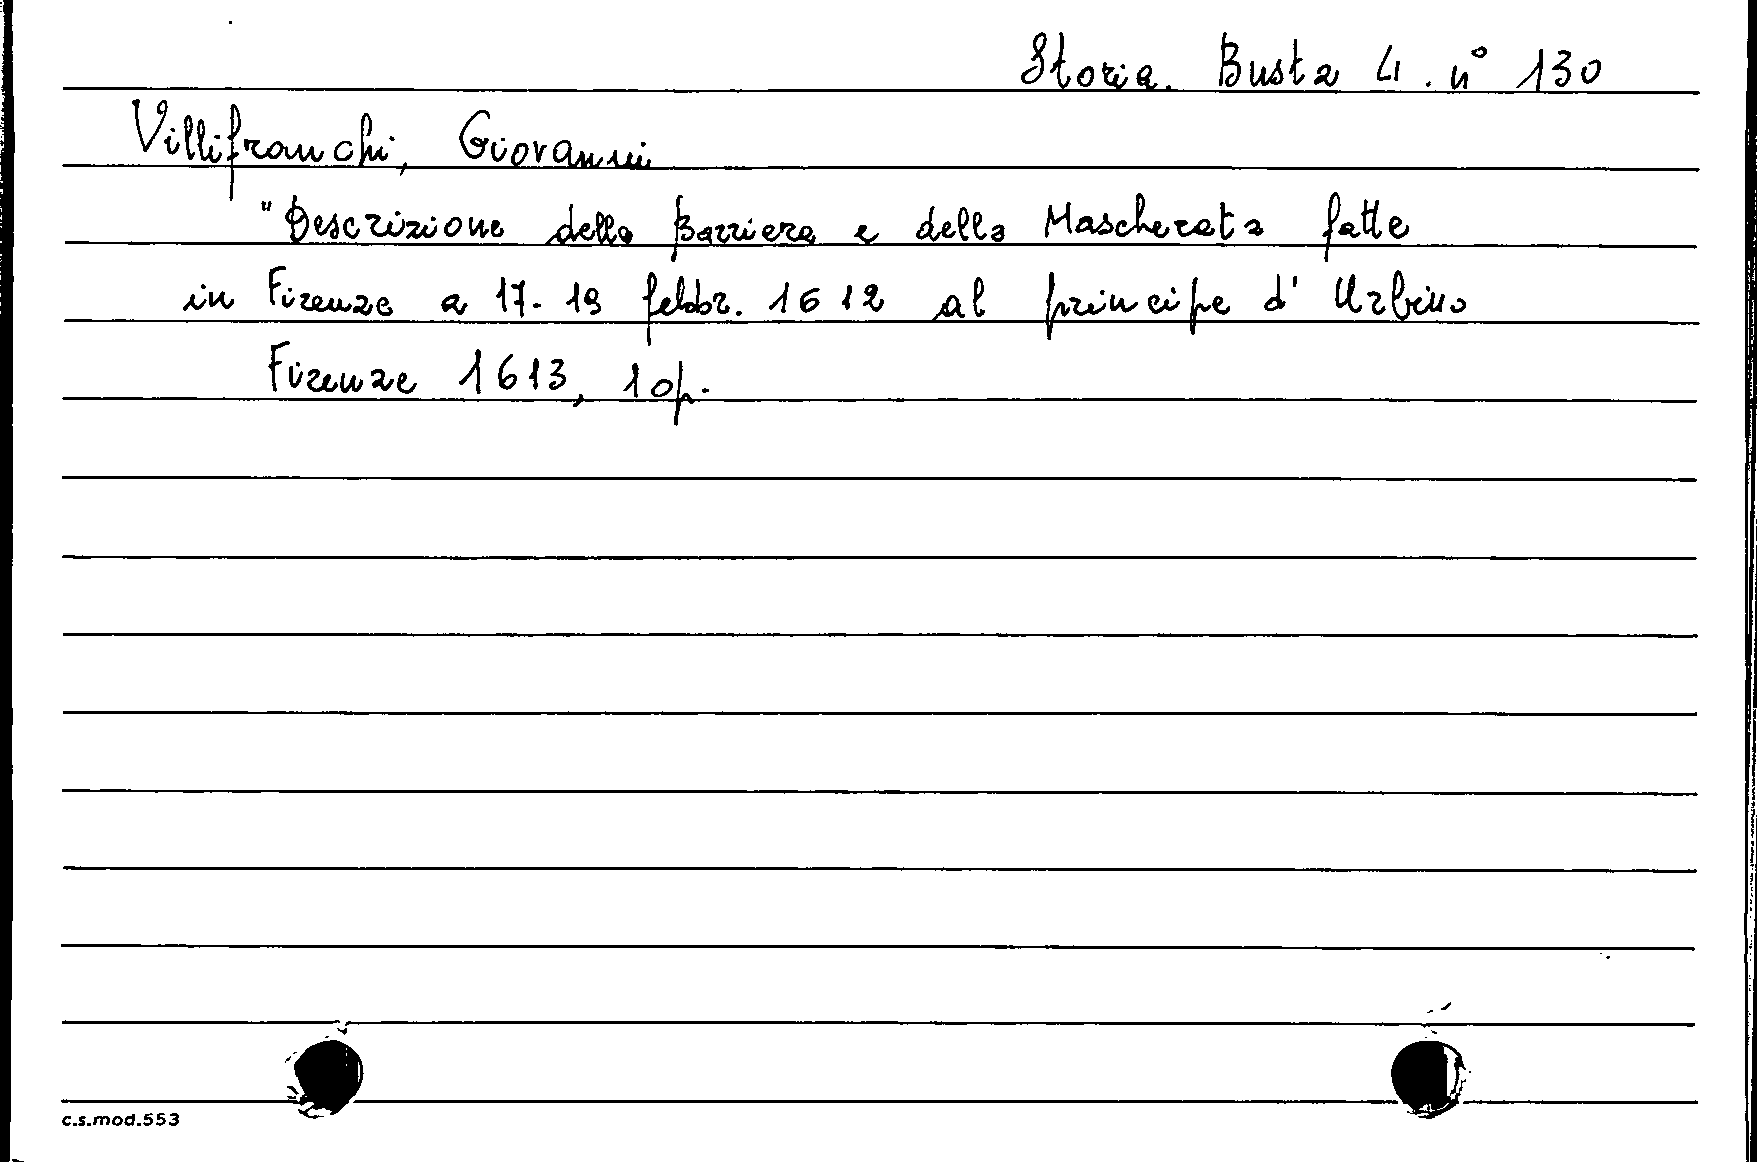 Storia. Busta 4. n° 130
Villifranchi, Giovanni
"Descrizione della Barriera e della Mascherata fatte
in Firenze a 17-19 febbr. 1612 al principe d'Urbino
Firenze 1613, 10p.
c.s.mod.553